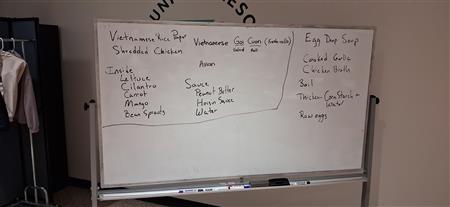 Vietnamese Rice Paper
Shredded Chicken
Inside
Lettuce
Cilantro
Carrot
Mango
Bean Sprouts
Vietnamese Goi Cuon (fresh rolls)
Salad Roll
Asian
Sauce
Peanut Butter
Hoisin Sauce
Water
Egg Drop Soup
Cooked Garlic
Chicken Broth
Boil
Thicken- Corn Starch +
Water
Raw eggs